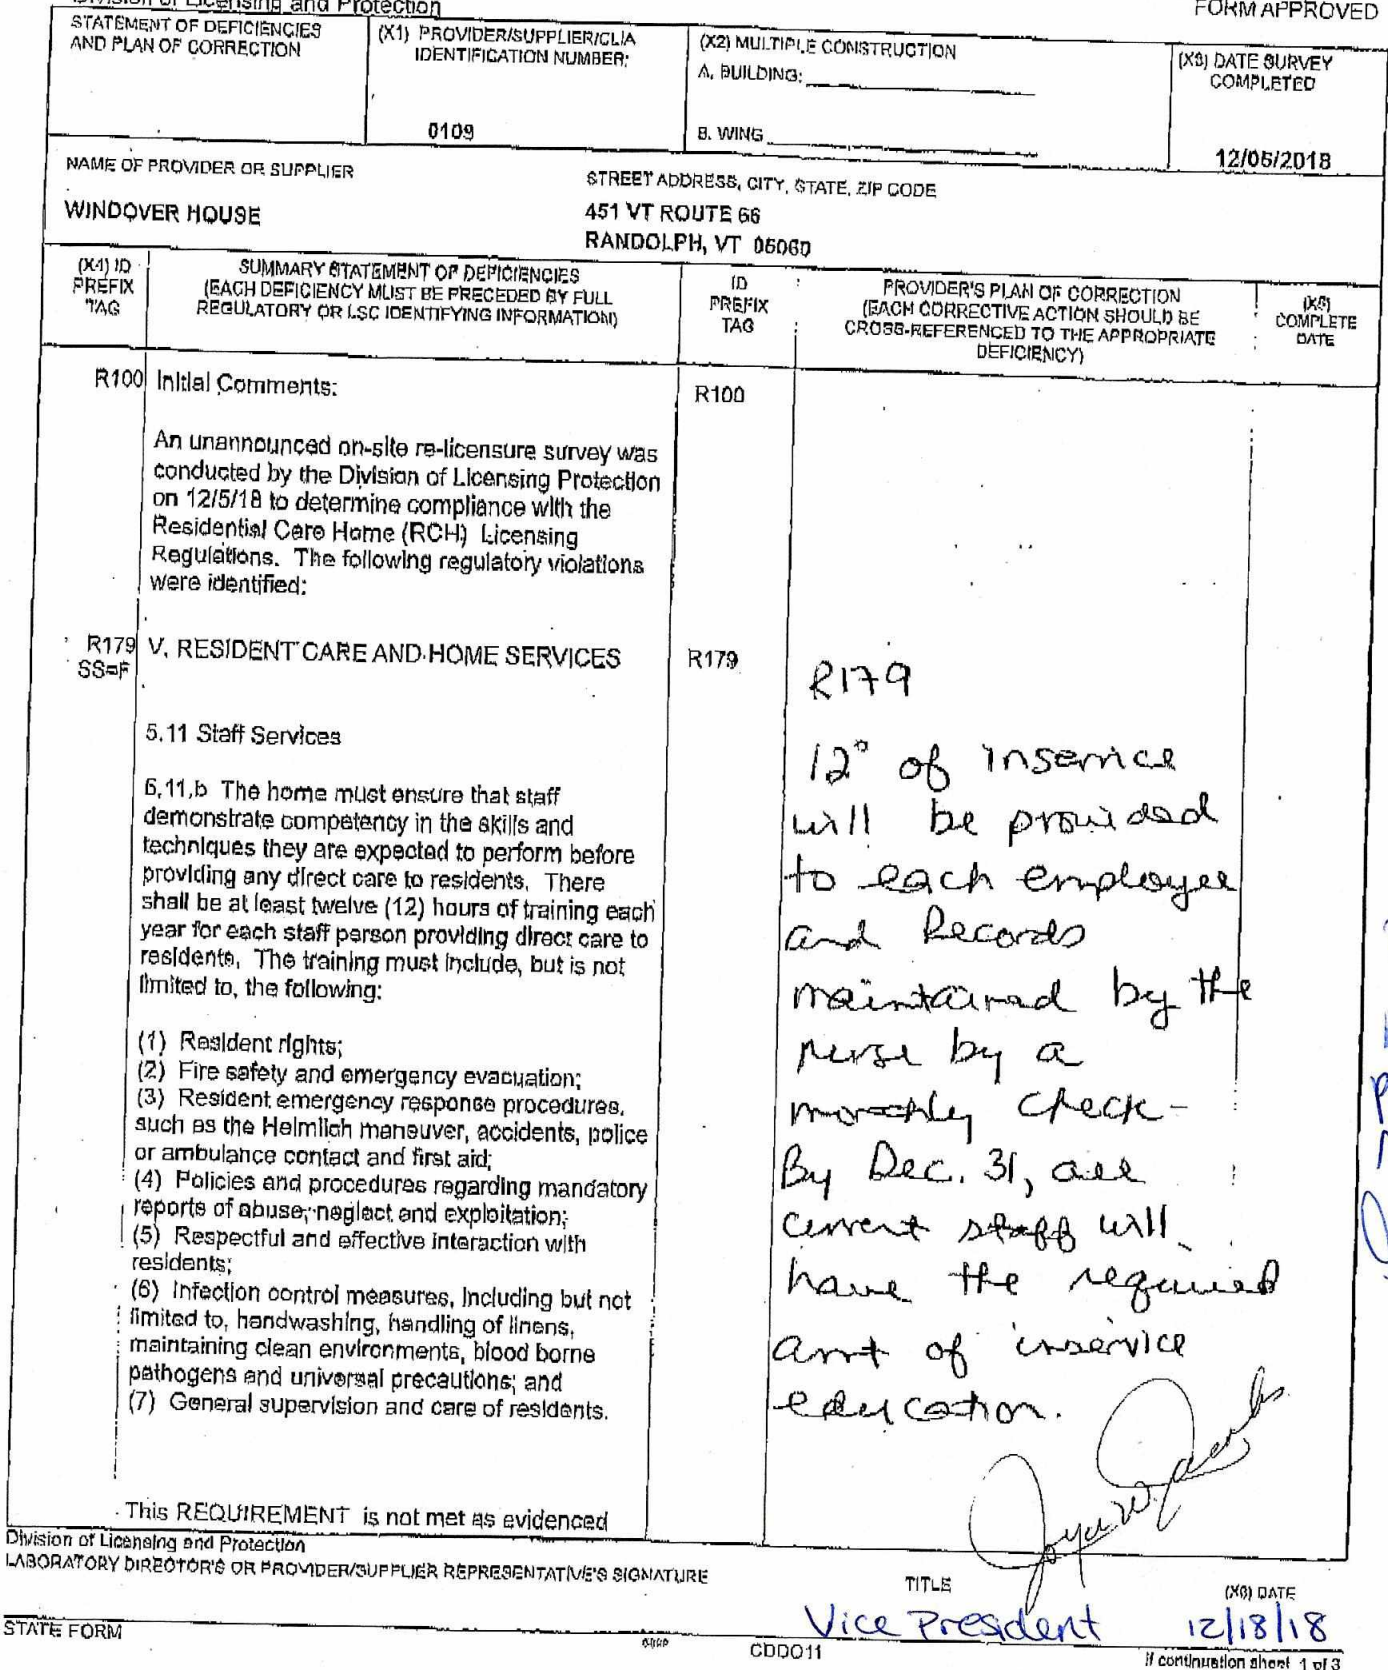 Division of Licensing and Protection
FORM APPROVED
STATEMENT OF DEFICIENCIES
AND PLAN OF CORRECTION
(X1) PROVIDER/SUPPLIER/CLIA
IDENTIFICATION NUMBER:
0109
(X2) MULTIPLE CONSTRUCTION
A. BUILDING:
B. WING
(X3) DATE SURVEY
COMPLETED
12/05/2018
NAME OF PROVIDER OR SUPPLIER
WINDOVER HOUSE
STREET ADDRESS, CITY, STATE, ZIP CODE
451 VT ROUTE 66
RANDOLPH, VT 05060
(X4) ID
PREFIX
TAG
SUMMARY STATEMENT OF DEFICIENCIES
(EACH DEFICIENCY MUST BE PRECEDED BY FULL
REGULATORY OR LSC IDENTIFYING INFORMATION)
ID
PREFIX
TAG
PROVIDER'S PLAN OF CORRECTION
(EACH CORRECTIVE ACTION SHOULD BE
CROSS-REFERENCED TO THE APPROPRIATE
DEFICIENCY)
(X5)
COMPLETE
DATE
R100 Initial Comments:
R100
An unannounced on-site re-licensure survey was
conducted by the Division of Licensing Protection
on 12/5/18 to determine compliance with the
Residential Care Home (RCH) Licensing
Regulations. The following regulatory violations
were identified:
R179 V. RESIDENT CARE AND HOME SERVICES
SS=F
R179
5.11 Staff Services
5.11.b The home must ensure that staff
demonstrate competency in the skills and
techniques they are expected to perform before
providing any direct care to residents. There
shall be at least twelve (12) hours of training each
year for each staff person providing direct care to
residents. The training must include, but is not
limited to, the following:
(1) Resident rights;
(2) Fire safety and emergency evacuation;
(3) Resident emergency response procedures,
such as the Heimlich maneuver, accidents, police
or ambulance contact and first aid;
(4) Policies and procedures regarding mandatory
reports of abuse, neglect and exploitation;
(5) Respectful and effective interaction with
residents;
(6) Infection control measures, including but not
limited to, handwashing, handling of linens,
maintaining clean environments, blood borne
pathogens and universal precautions; and
(7) General supervision and care of residents.
This REQUIREMENT is not met as evidenced
R179
12° of inservice
will be provided
to each employee
and Records
maintained by the
nurse by a
monthly check-
By Dec. 31, all
current staff will
have the required
amt of inservice
education.
Joyce W. Jacobs
Division of Licensing and Protection
LABORATORY DIRECTOR'S OR PROVIDER/SUPPLIER REPRESENTATIVE'S SIGNATURE
TITLE
(X6) DATE
Vice President
12/18/18
STATE FORM
CDDO11
If continuation sheet 1 of 3